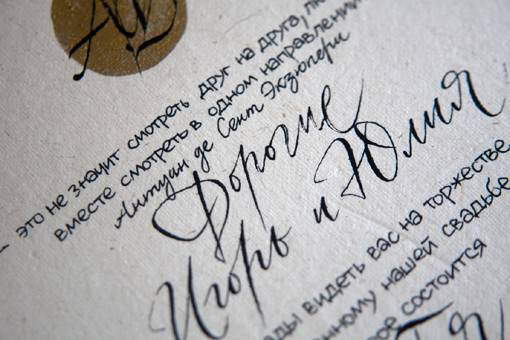 АВ
– это не значит смотреть друг на друга,
вместе смотреть в одном направлении
Антуан де Сент Экзюпери
Дорогие
Игорь и Юлия
видеть вас на торжестве
нашей свадьбе
состоится